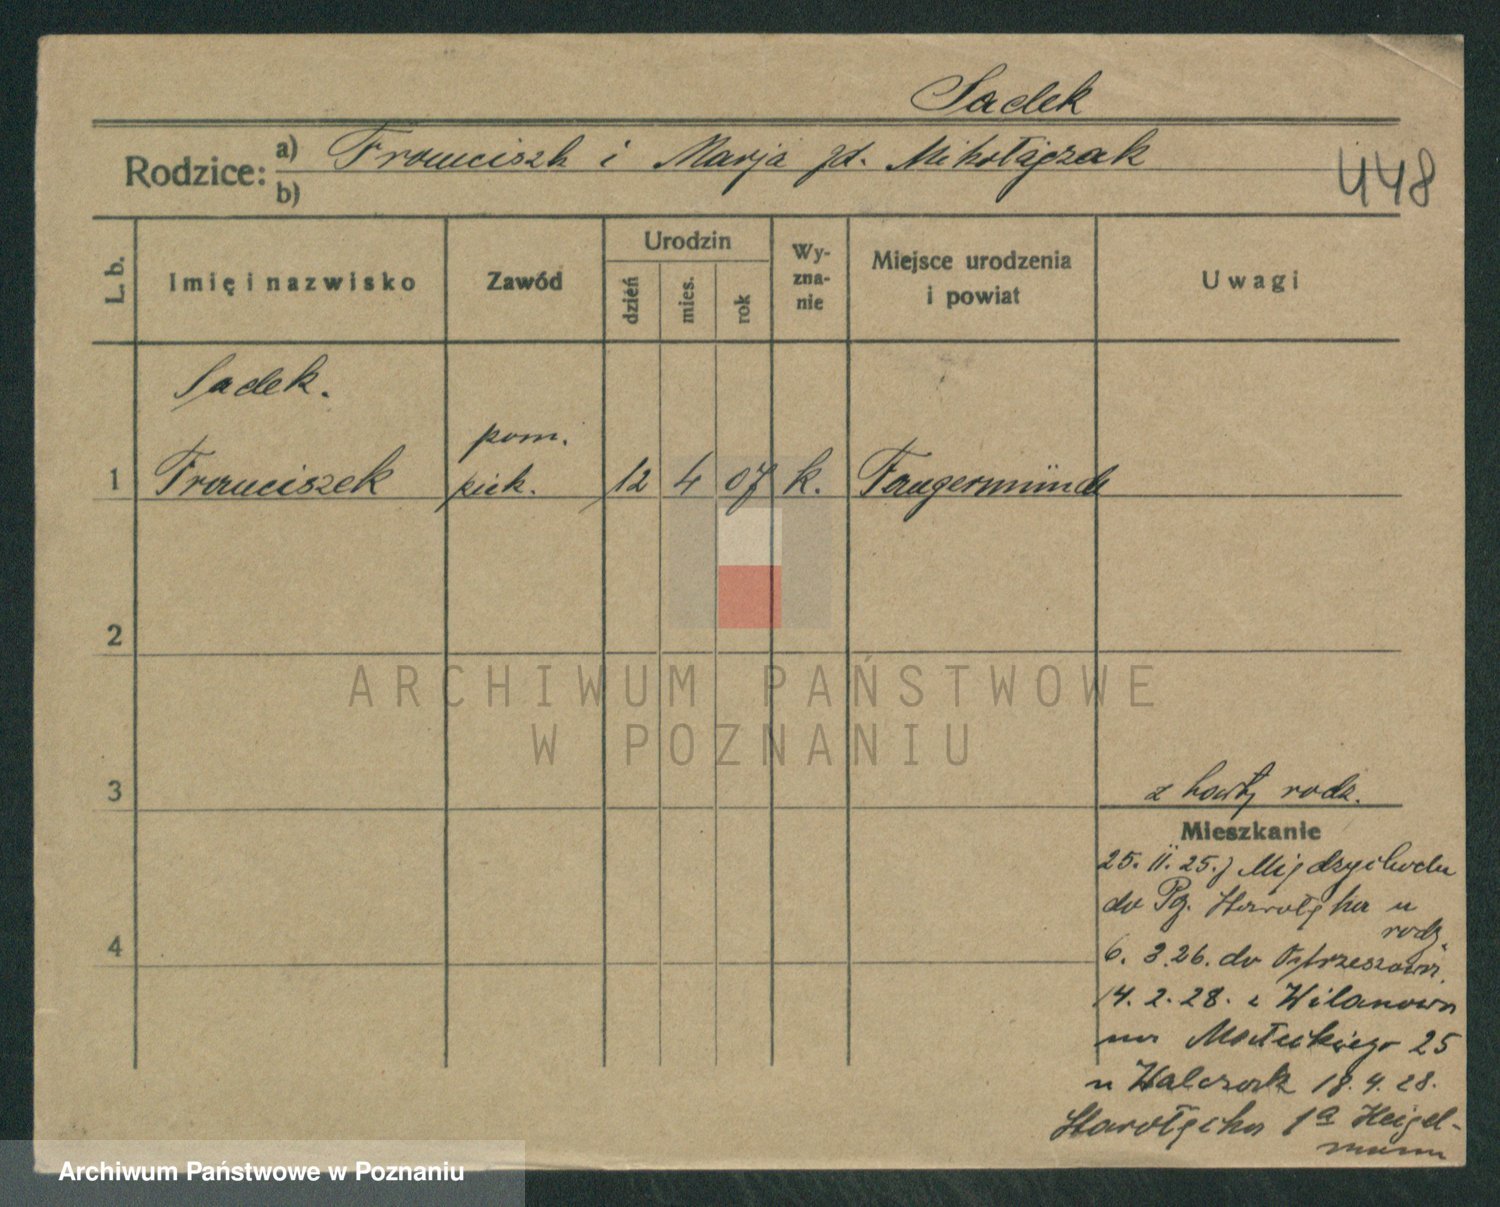 Sadek
Rodzice: a) Franciszk i Marja zd. Mikołajczak
b)
448
L. b.
Imię i nazwisko
Zawód
Urodzin
dzień
mies.
rok
Wy-
zna-
nie
Miejsce urodzenia
i powiat
Uwagi
Sadek.
pom.
1 Franciszek piek. 12 4 07 k. Tangermünde
2
ARCHIWUM PAŃSTWOWE
W POZNANIU
3
z karty rodz.
Mieszkanie
25. II. 25. z Międzychodu
do Pozn. Starołęka u
rodz.
6. 3. 26. do Ostrzeszowa.
14. 2. 28. z Wilanowa
na Małeckiego 25
u Walczak 18. 4. 28.
Starołęcka 1a Heigel-
mann
4
Archiwum Państwowe w Poznaniu